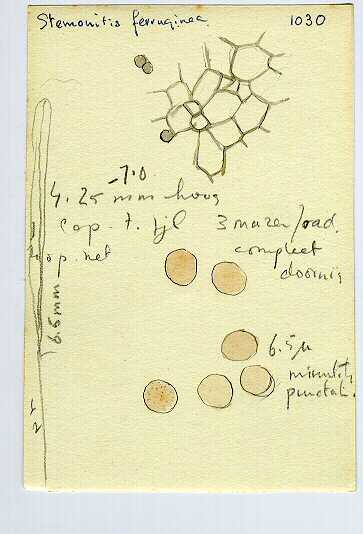 Stemonitis ferruginea
1030
-7.0
4.25 mm hoog
cap. t.
3 mazen/rad.
compleet
doornig
op. net
6.5 mm
6.5 µ
minutely
punctate.